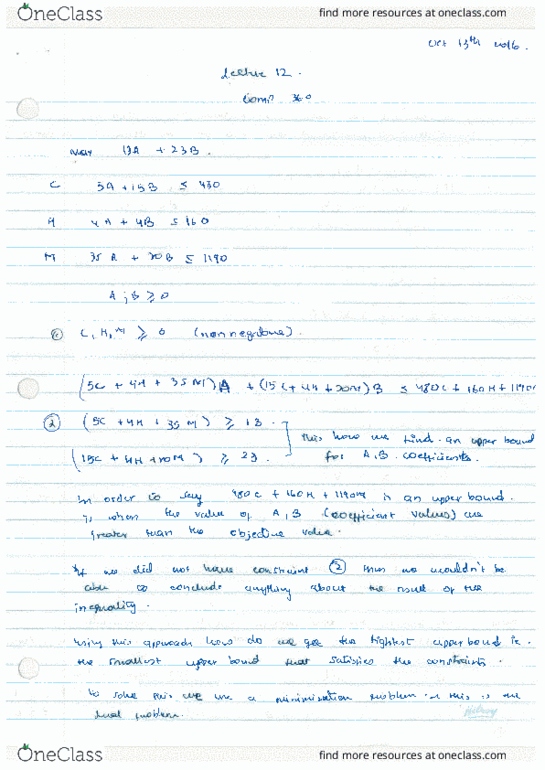 OneClass
find more resources at oneclass.com
Oct 13th 2016.
Lecture 12.
Comp 360
Max 13A + 23B.
C 5A + 15B ≤ 480
H 4A + 4B ≤ 160
M 35A + 20B ≤ 1190
A, B ≥ 0
① C, H, M ≥ 0 (nonnegative).
(5C + 4H + 35M)A + (15C + 4H + 20M)B ≤ 480C + 160H + 1190M
② (5C + 4H + 35M) ≥ 13.
(15C + 4H + 20M) ≥ 23.
this how we find an upper bound
for A, B coefficients.
In order to say 480C + 160H + 1190M is an upper bound.
is when the value of A, B (coefficient values) are
greater than the objective value.
If we did not have constraint ② then we wouldn't be
able to conclude anything about the result of the
inequality.
Using this approach how do we get the tightest upper bound ie.
the smallest upper bound that satisfies the constraints.
To solve this we use a minimization problem this is the
dual problem.
OneClass
find more resources at oneclass.com